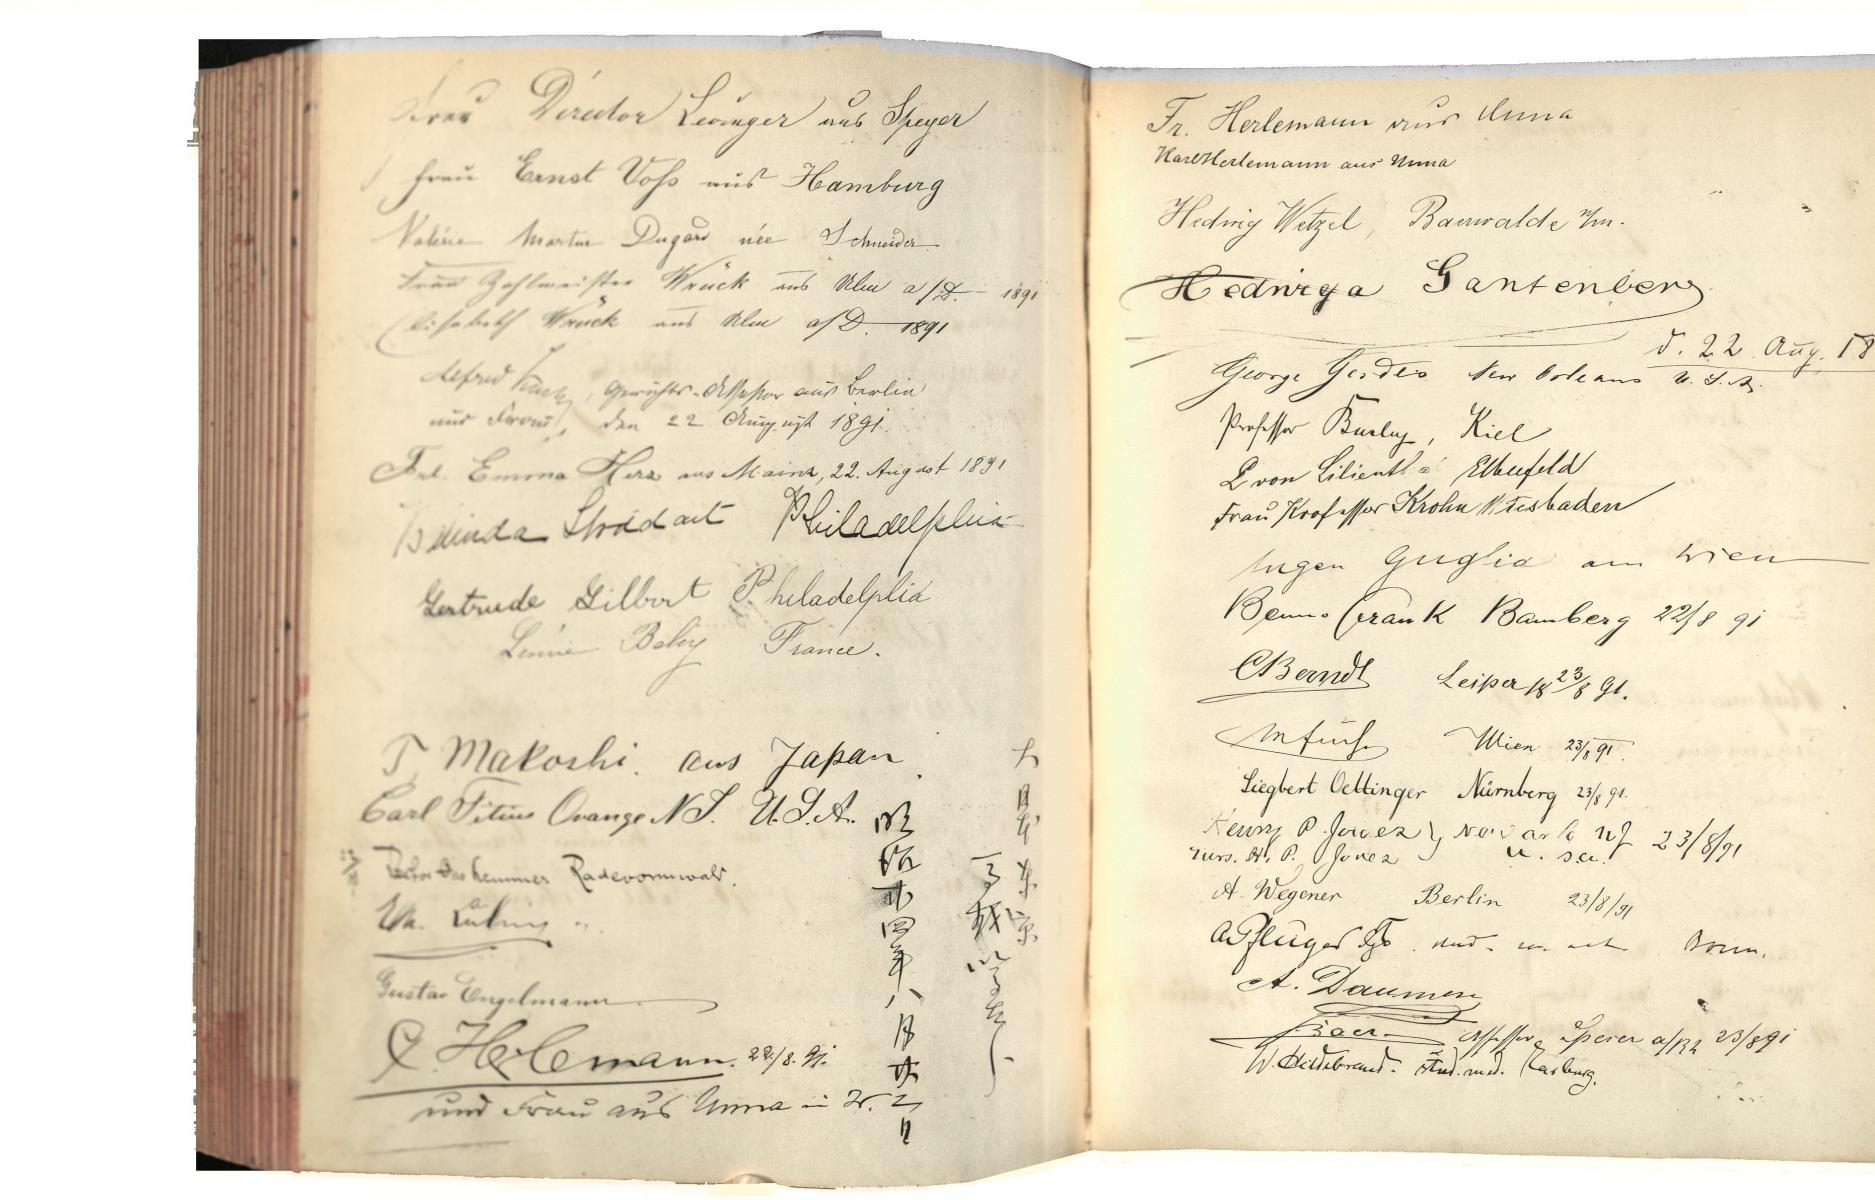 Frau Director Levinger aus Speyer
Frau Ernst Voß aus Hamburg
Valérie Martin Dugard née Schneider
Frau Zahlmeister Wrück aus Ulm a/D. – 1891
Elisabeth Wrück aus Ulm a/D. 1891
Alfred Gerichts-Assessor aus Berlin
und Frau, den 22 August 1891.
Frl. Emma Herz aus Mainz, 22. August 1891
Belinda Stoddart Philadelphia
Gertrude Gilbert Philadelphia
France.
T. Makoshi. aus Japan
Carl Titius Orange N.J. U.S.A.
Radevormwald.
Gustav Engelmann
C. Herlemann. 22./8. 91.
und Frau aus Unna in W.
大日本東京
馬越
明治廿四年八月廿二日
Fr. Herlemann aus Unna
Karl Herlemann aus Unna
Hedwig Wetzel, Baerwalde N/m.
Hedwiga Gantenberg
d. 22 Aug. 18
George Gerdes New Orleans U.S.A.
Professor Busley, Kiel
von Lilienthal Elberfeld
Frau Professor Krohn Wiesbaden
Eugen Guglia aus Wien
Benno Frank Bamberg 22/8 91
C Berndt Leipzig 23/8 91.
Wien 23/8 91.
Siegbert Oettinger Nürnberg 23/8 91.
Henry P. Jones Newark NJ 23/8/91
Mrs. H. P. Jones U.S.A.
A. Wegener Berlin 23/8/91
A Pflüger Bonn.
A. Daumen
Baer Assessor Speier a/Rh 23/8 91
W. Hildebrand. stud. med. Marburg.